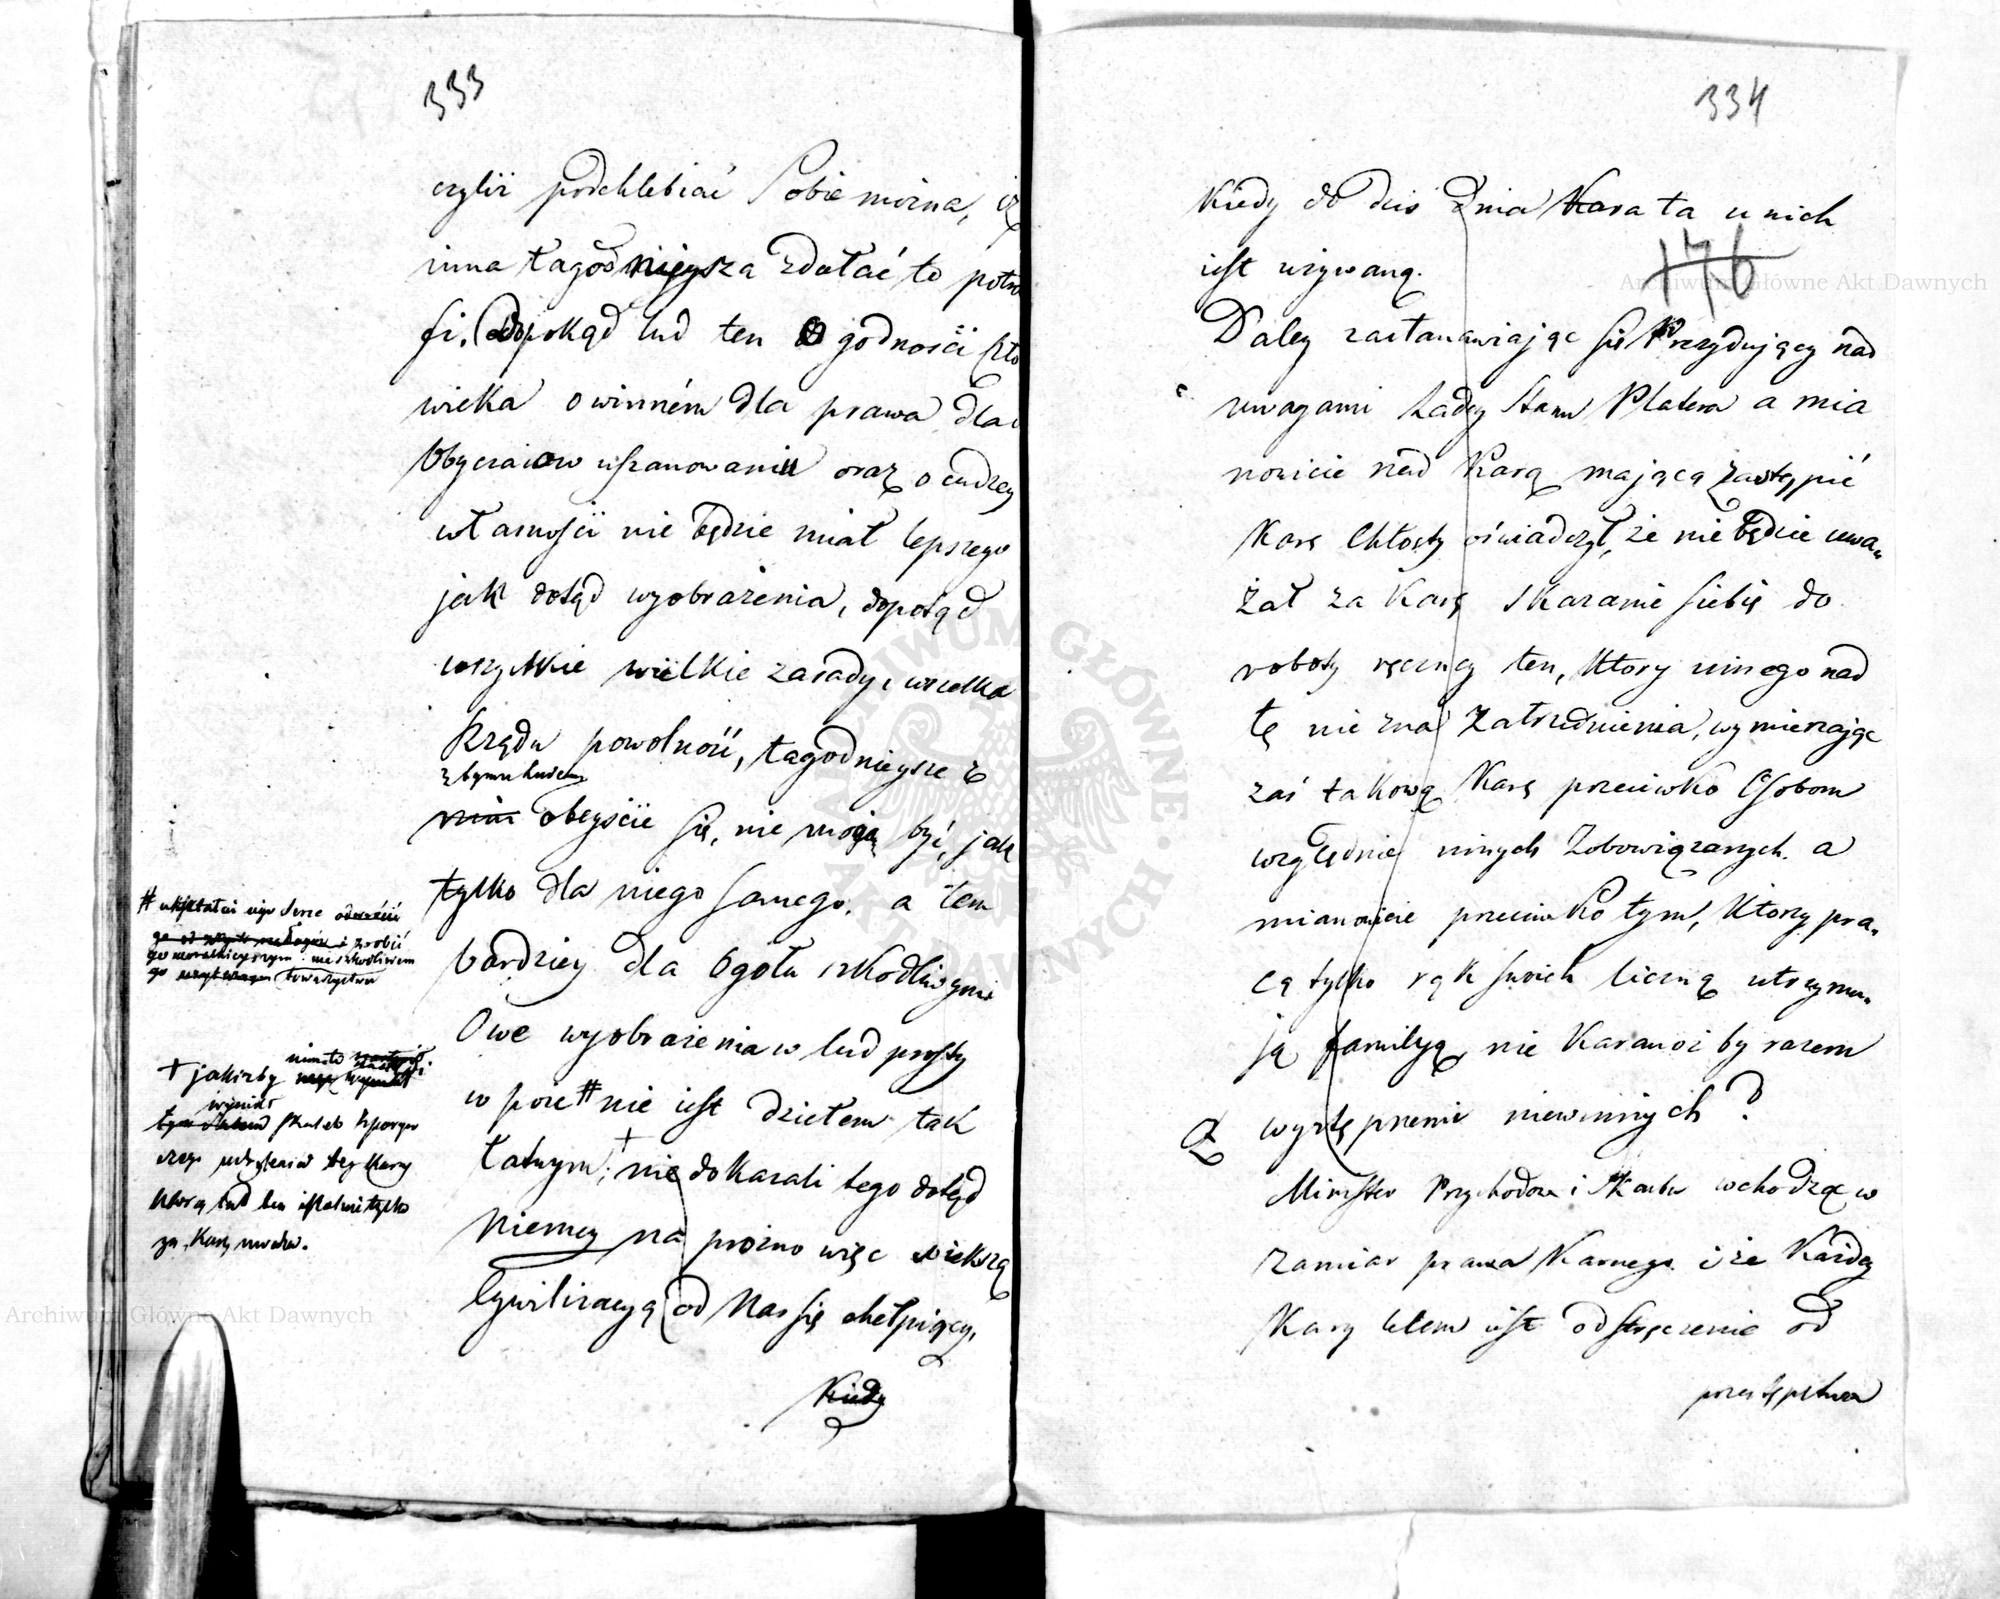 333
czylii podchlebiać Sobie można, iż
inna łagodnieysza zdołać to potra
fi. dopokąd lud ten o godności czło
wieka o winném dla prawa dla
Obyczaiow uszanowaniu oraz o cudzey
własności nie będzie miał lepszego
jak dotąd wyobrażenia, dopokąd
wszystkie wielkie zasady, wszelka
Rządu powolność, łagodnieysze z
z tym ludem
nim obeyście się, nie mogą być, jak
tylko dla niego samego, a tem
bardziey dla Ogołu szkodliwymi
Owe wyobrażenia w lud prosty
w poie # nie iest dziełem tak
łatwym; + nie dokazali tego dotąd
Niemcy na prożno więc większą
Cywilizacyą od Nas się chełpiący,
Kiedy
# ukształcić iego Serce odzwyczić
go od złych nałogów i zrobić
go moralnieyszym nieszkodliwem
go towarzystwu
+ jakiżby
wynikł
skutek
uchylenia tey Kary
którą lud ten istotnie tylko
za Karę uważa.
334
Kiedy do dziś dnia Kara ta u nich
iest używaną.
176
Daley zastanawiając się Prezydujący nad
uwagami Radcy Stanu Platera a mia
nowicie nad Karą mającą zastąpić
Karę Chłosty oświadczył, że nie będzie uwa„
żał za Karę skazanie siebie do
roboty ręczney ten, Ktory innego nad
tę nie zna Zatrudnienia, wymierzając
zaś takową Karę przeciwko Osobom
względnie innych Zobowiązanych a
mianowicie przeciwko tym, Ktorzy pra„
cą tylko rąk swoich liczną utrzymu„
ją familyą, nie Karanoż by razem
występnem niewinnych?
Minister Przychodow i Skarbu wchodząc w
zamiar prawa Karnego i że Każdey
Kary celem iest odstręczenie od
przestępstwa
Archiwum Główne Akt Dawnych
Archiwum Główne Akt Dawnych
ARCHIWUM GŁÓWNE AKT DAWNYCH